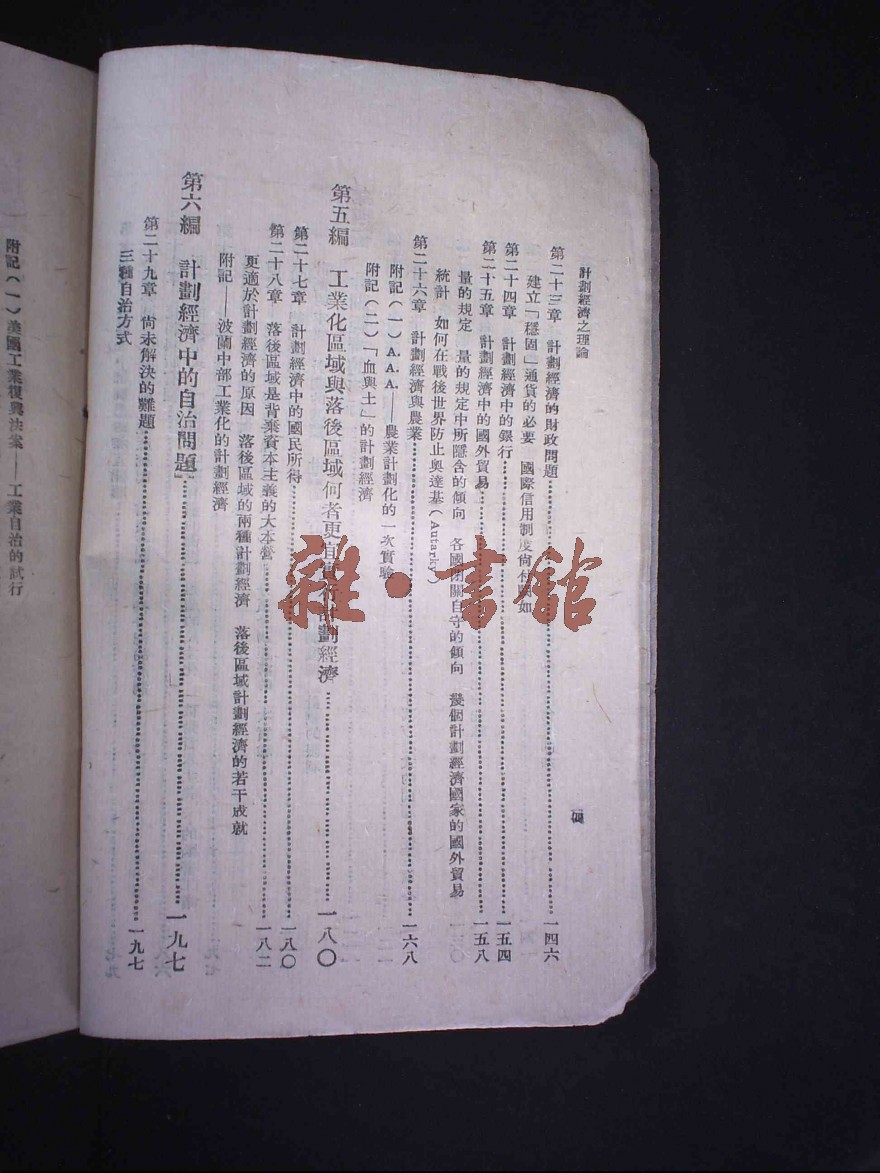 計劃經濟之理論
四
第二十三章　計劃經濟的財政問題……一四六
建立「穩固」通貨的必要　國際信用制度尙付闕如
第二十四章　計劃經濟中的銀行……一五四
第二十五章　計劃經濟中的國外貿易……一五八
量的規定　量的規定中所隱含的傾向　各國閉關自守的傾向　幾個計劃經濟國家的國外貿易
統計　如何在戰後世界防止奧達基(Autarky)
第二十六章　計劃經濟與農業……一六八
附記(一)A.A.A.——農業計劃化的一次實驗
附記(二)「血與土」的計劃經濟
第五編　工業化區域與落後區域何者更宜　計劃經濟……一八〇
第二十七章　計劃經濟中的國民所得……一八〇
第二十八章　落後區域是背棄資本主義的大本營……一八二
更適於計劃經濟的原因　落後區域的兩種計劃經濟　落後區域計劃經濟的若干成就
附記——波蘭中部工業化的計劃經濟
第六編　計劃經濟中的自治問題……一九七
第二十九章　尙未解決的難題……一九七
三種自治方式
附記(一)美國工業復興法案——工業自治的試行
雜·書館